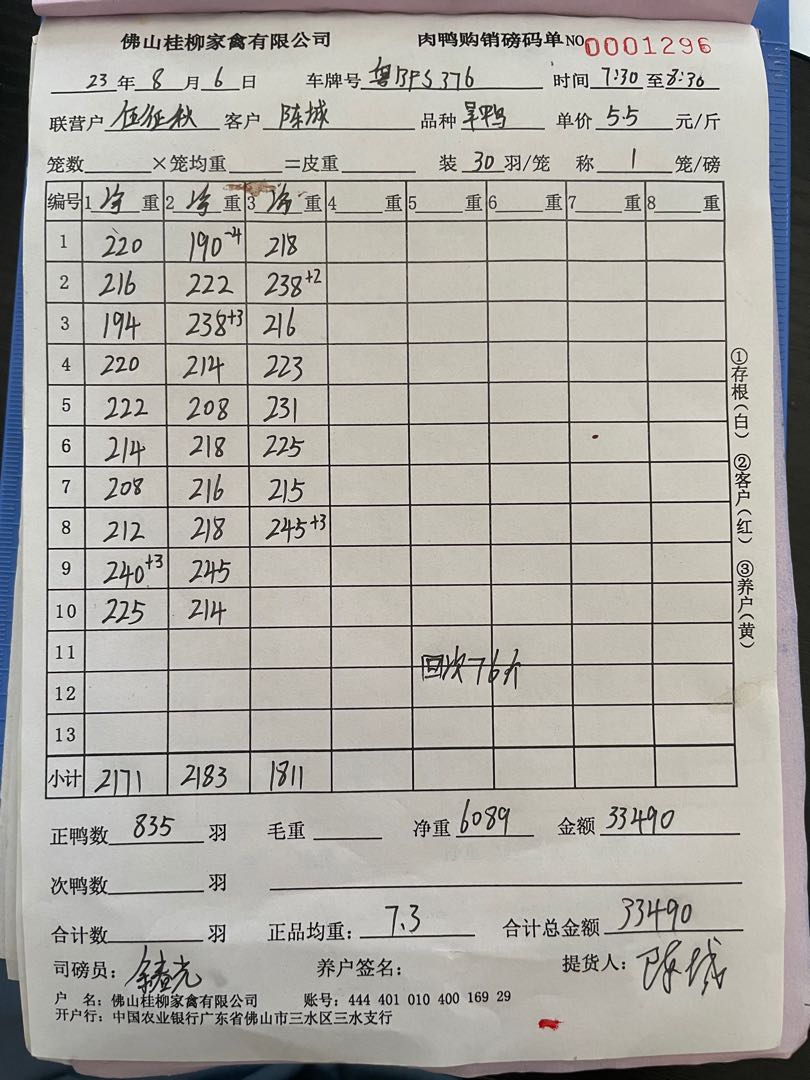 佛山桂柳家禽有限公司 肉鸭购销磅码单 NO 0001296
23年8月6日 车牌号 粤BPS376 时间 7:30至8:30
联营户 伍征秋 客户 陈城 品种 旱鸭 单价 5.5 元/斤
笼数 ×笼均重 =皮重 装 30 羽/笼 称 1 笼/磅
编号 1净重 2净重 3净重 4重 5重 6重 7重 8重
1 220 190-4 218
2 216 222 238+2
3 194 238+3 216
4 220 214 223
5 222 208 231
6 214 218 225
7 208 216 215
8 212 218 245+3
9 240+3 245
10 225 214
11
回次76斤
12
13
小计 2171 2183 1811
正鸭数 835 羽 毛重 净重 6089 金额 33490
次鸭数 羽
合计数 羽 正品均重: 7.3 合计总金额 33490
司磅员: 养户签名: 提货人: 陈城
户 名: 佛山桂柳家禽有限公司 账号: 444 401 010 400 169 29
开户行: 中国农业银行广东省佛山市三水区三水支行
①存根(白) ②客户(红) ③养户(黄)